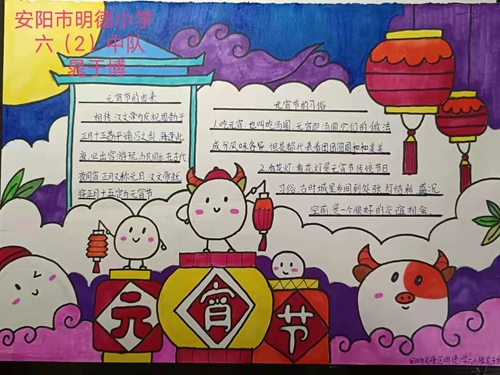 安阳市明德小学
六（2）中队
晁于博
元宵节的由来
相传,汉文帝为庆祝周勃于
正月十五勘平诸吕之乱,每逢此
夜,必出宫游玩,与民同乐,在古代
夜同宵,正月又称元月,汉文帝就
将正月十五定为元宵节
元宵节的习俗
1.吃元宵,也叫吃汤圆,元宵即汤圆它们的做法
成分风味各异,但是都代表着团团圆圆和和美美
2.看花灯:看花灯是元宵节传统节日
习俗,古时城里乡间到处张灯结彩,盛况
空前,是一个很好的友谊机会
元宵节